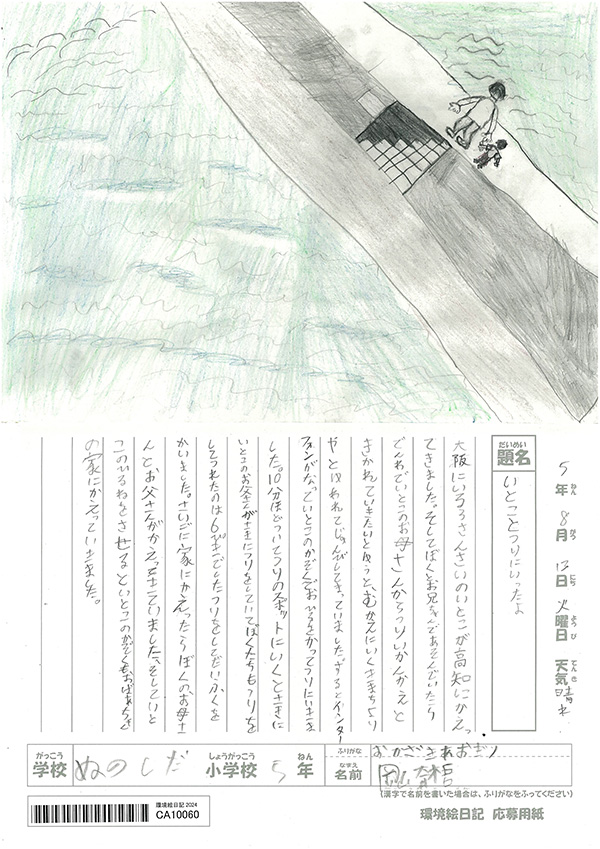 5年 8月 13日 火曜日 天気 晴れ
ねん がつ にち ようび てんき
だいめい
題名
いとことつりにいったよ
大阪にいる3さんさいのいとこが高知にかえっ
てきました。そしてぼくとお兄ちゃんであそんでいたら
でんわでいとこのお母さんからつりいかんかえと
きかれていきたいとゆうと、むかえにいくきまちより
やとゆわれてじゅんびしてまっていました。するとインター
フォンがなっていとこのかぞくでおひるをかってつりにいきま
した。10分ほどついてつりのスポットにいくとさきに
いとこのお父さんがさきにつりをしていてぼくたちもつりを
してつれたのは6ぴきでしたつりをしてだいふくを
かいました。さいごに家にかえったらぼくのお母さ
んとお父さんがかえってきていました、そしていと
このひるねをさせるといとこのかぞくもおばあちゃん
の家にかえっていきました。
がっこう
学校
ぬのしだ
しょうがっこう
小学校
5
ねん
年
ふりがな
おかざき
なまえ
名前
(漢字で名前を書いた場合は、ふりがなをふってください)
環境絵日記 2024
CA10060
環境絵日記 応募用紙